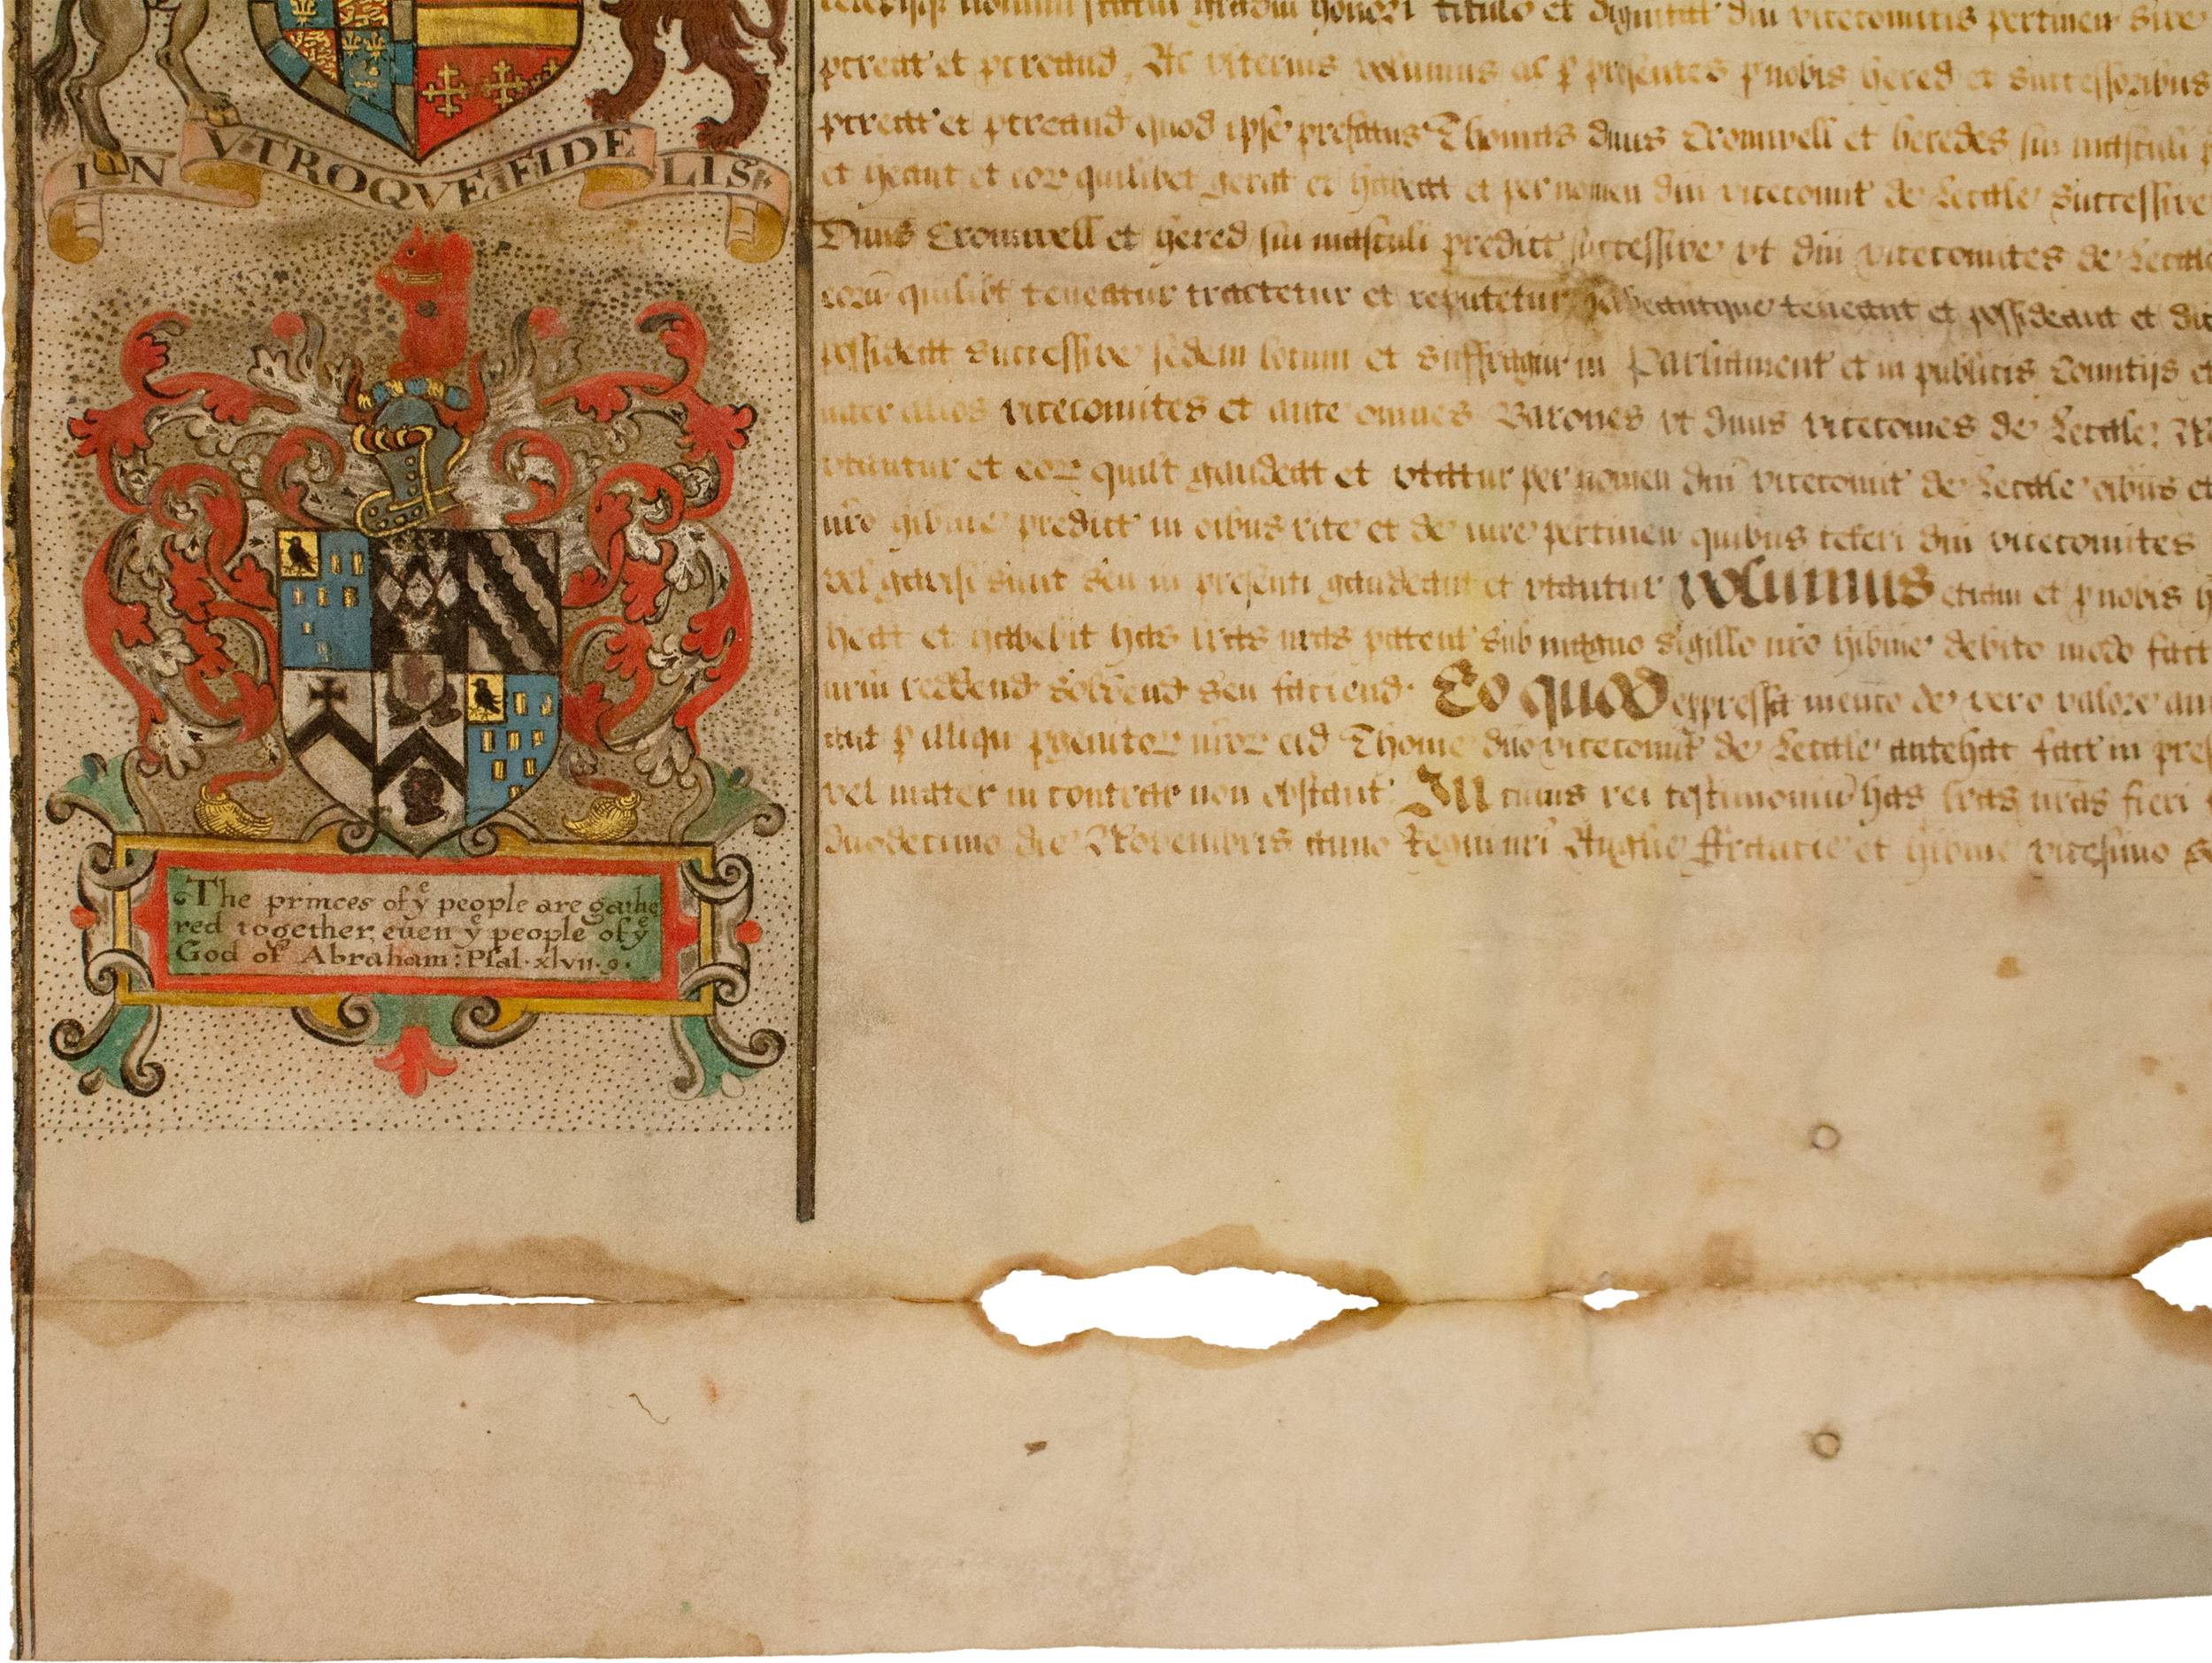 IN VTROQVE FIDELIS
The princes of yͤ people are gathe
red together, euen yͤ people of yͤ
God of Abraham: Psal. xlvii. 9.
titulo et dignitat dni vicecomitis pertinen sive
gereat et gereand, Ac vlterius volumus ac p presentes p nobis hered et successoribus
quod ipse prefatus Thomas dnus Cromwell et heredes sui masculi
et cor quilibet gerat et habeat et per nomen dni vicecomit de Lecale successive
Dnus Cromwell et hered sui masculi predict successive vt dni vicecomites de Lecale
quilibt teneatur tractetur et reputetur habeantque teneant et possideant et
possideat successive sedem locum et suffragiu in Parliament et in publicis Comitijs et
inter alios vicecomites et ante omnes Barones vt dnus vicecomes de Lecale:
vtantur et cor quilt gaudeat et vtatur per nomen dni vicecomit de Lecale oibus et
nro hibnie predict in oibus rite et de iure pertinen quibus ceteri dni vicecomites
vel gavisi sunt seu in presenti gaudeant et vtantur Volumus etiam et p nobis
heat et habebit has lras nras paten sub magno sigillo nro hibnie debito modo fact
reddend solvend seu faciend. Eo quod expressa mencio de vero valore
aut p aliqu pgenitor nror eid Thome dno vicecomit de Lecale antehac fact in
vel mater in contrar non obstant. In cuius rei testimoniu has lras nras fieri
duodecimo die Novembris anno Regni nri Anglie ffrancie et hibnie vicesimo